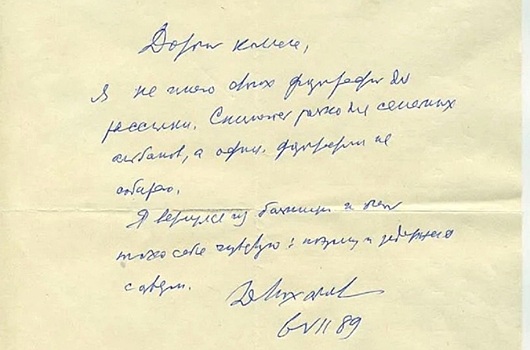 Дорогой коллега,
Я не имею своих фотографий для
рассылки. Снимают только для семейных
альбомов, а офиц. фотографии не
собираю.
Я вернулся из больницы и
плохо себя чувствую; потому и задержался
с ответом.
6 VII 89